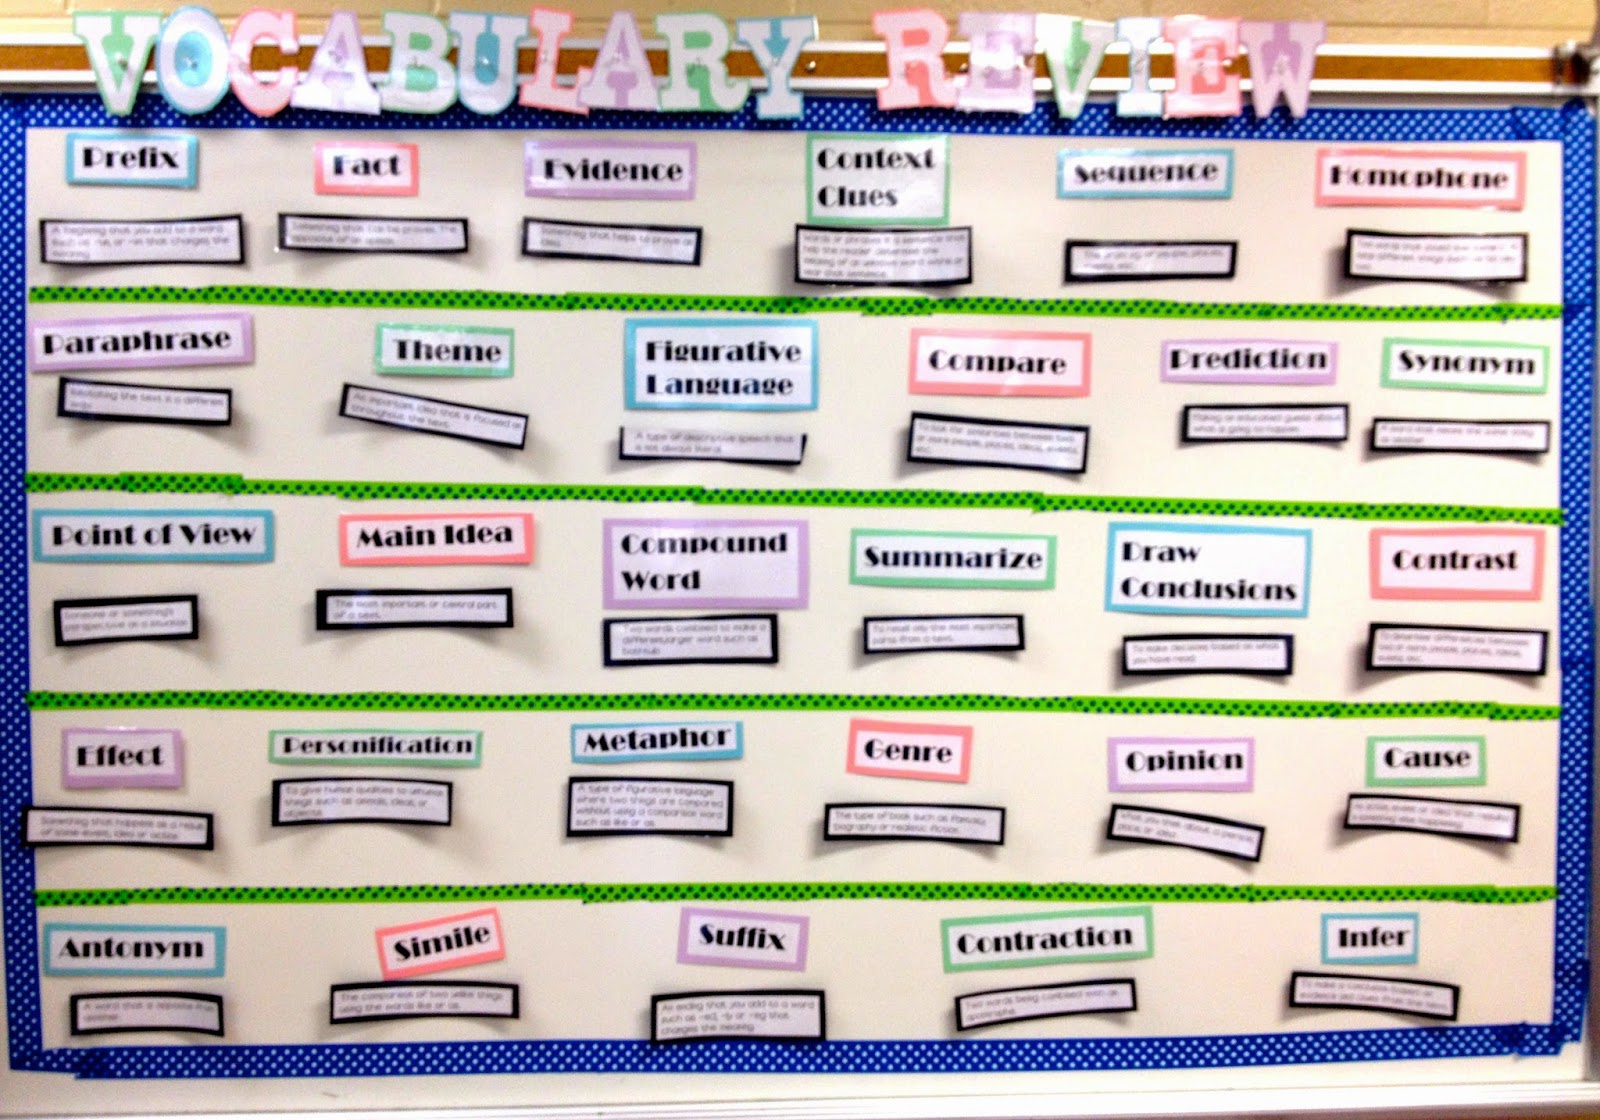 VOCABULARY REVIEW
Prefix
Fact
Evidence
Context
Clues
Sequence
Homophone
A beginning that you add to a word
such as -un, or -in that changes the
meaning.
Something that can be proven. The
opposite of an opinion.
Something that helps to prove an
idea.
words or phrases in a sentence that
help the reader determine the
meaning of an unknown word
Paraphrase
Theme
Figurative
Language
Compare
Prediction
Synonym
Restating the text in a different
way.
An important idea that is focused on
throughout the text.
A type of descriptive speech that
is not always literal.
To look for similarities between two
or more people, places, ideas, events,
etc.
Making an educated guess about
what is going to happen.
A word that means the same thing
as another.
Point of View
Main Idea
Compound
Word
Summarize
Draw
Conclusions
Contrast
Someone or something's
perspective on a situation.
The most important or central part
of a text.
Two words combined to make a
different/larger word such as
bathtub.
To retell only the most important
parts from a text.
To make decisions based on what
you have read.
To determine differences between
two or more people, places, ideas,
events, etc.
Effect
Personification
Metaphor
Genre
Opinion
Cause
Something that happens as a result
of some event, idea or action.
To give human qualities to
things such as animals, ideas, or
objects.
A type of figurative language
where two things are compared
without using a comparison word
such as like or as.
The type of book such as fantasy,
biography or realistic fiction.
What you think about a person,
place, or idea.
Antonym
Simile
Suffix
Contraction
Infer
A word that is opposite from
another.
The comparison of two unlike things
using the words like or as.
An ending that you add to a word
such as -ed, -ly or -ing that
changes the meaning.
Two words being combined with an
apostrophe.
To make a conclusion based on
evidence and clues from the text.